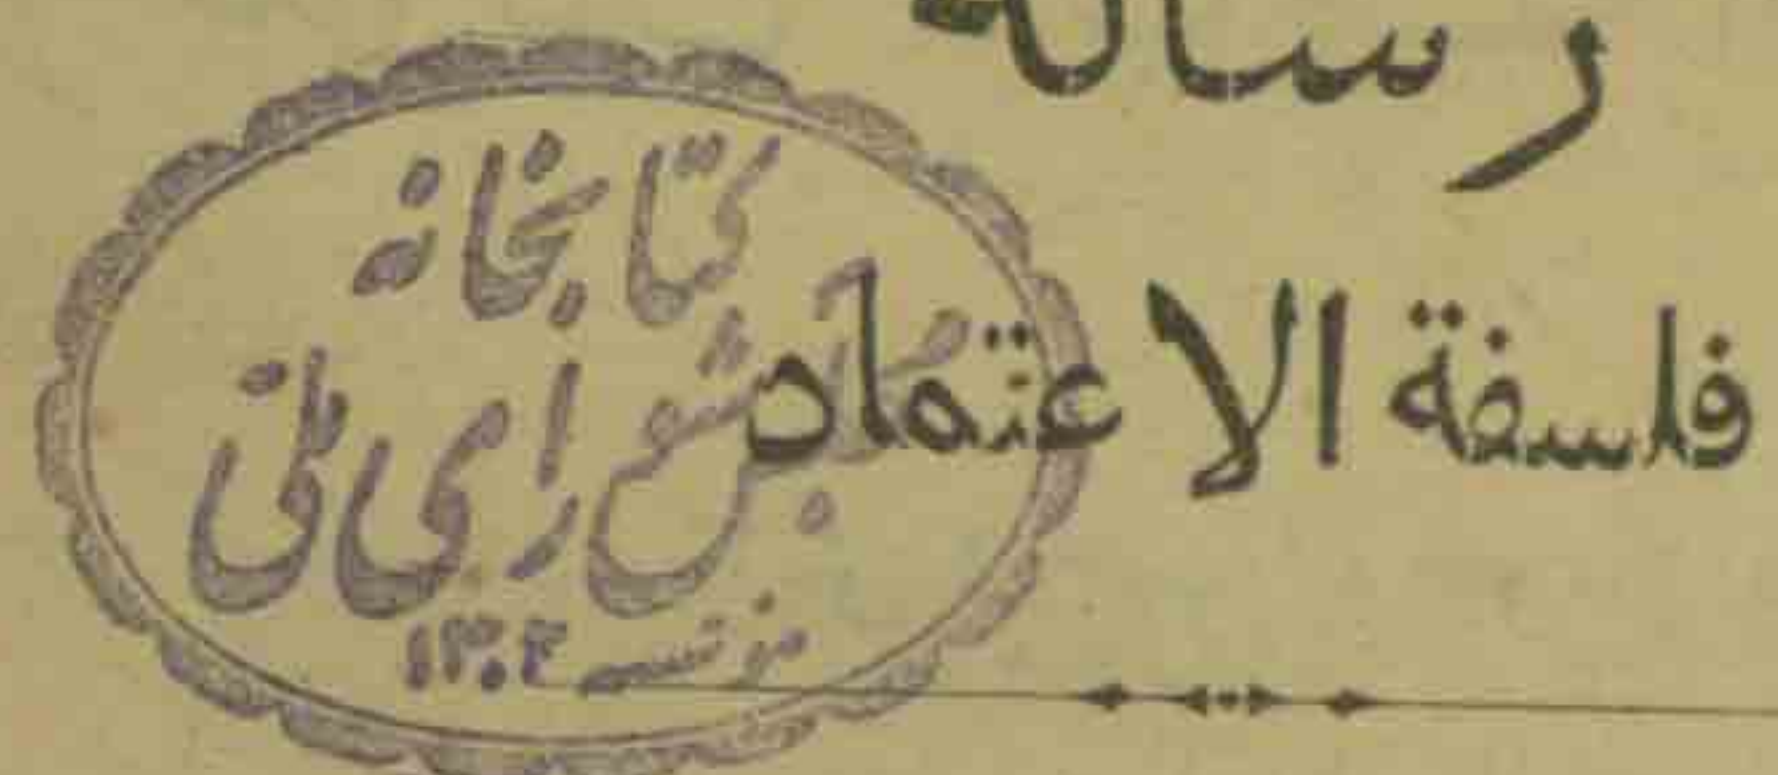 رسالة
فلسفة الاعتماد
كتابخانه
مجلس شورای ملی
مؤسسه ۱۳۰۲